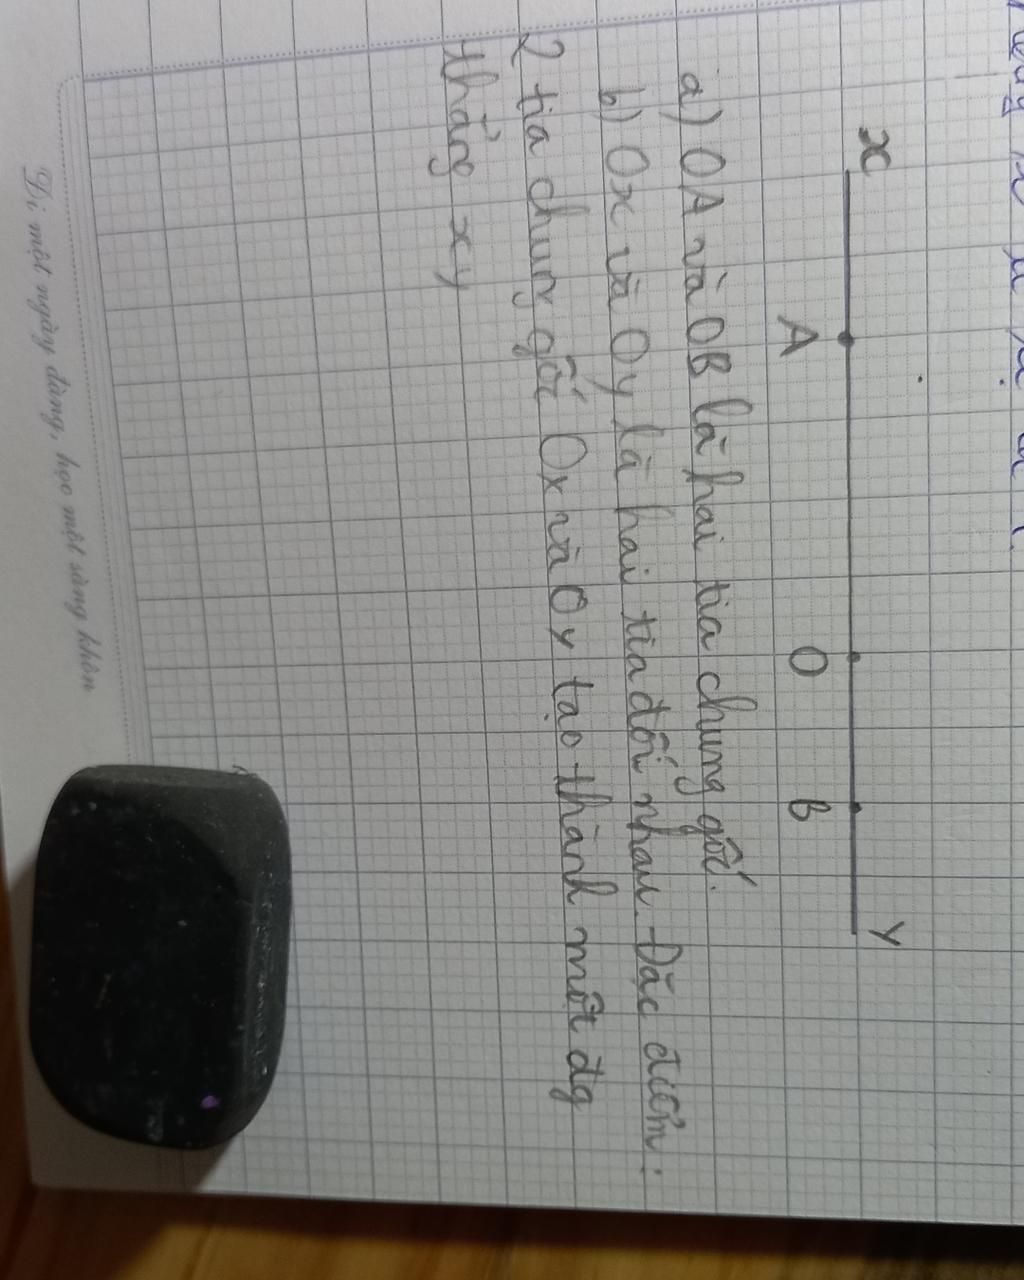 x A O B y
a) OA và OB là hai tia chung gốc.
b) Ox và Oy là hai tia đối nhau. Đặc điểm:
2 tia chung gốc Ox và Oy tạo thành một đg
thẳng xy
Đi một ngày đàng, học một sàng khôn